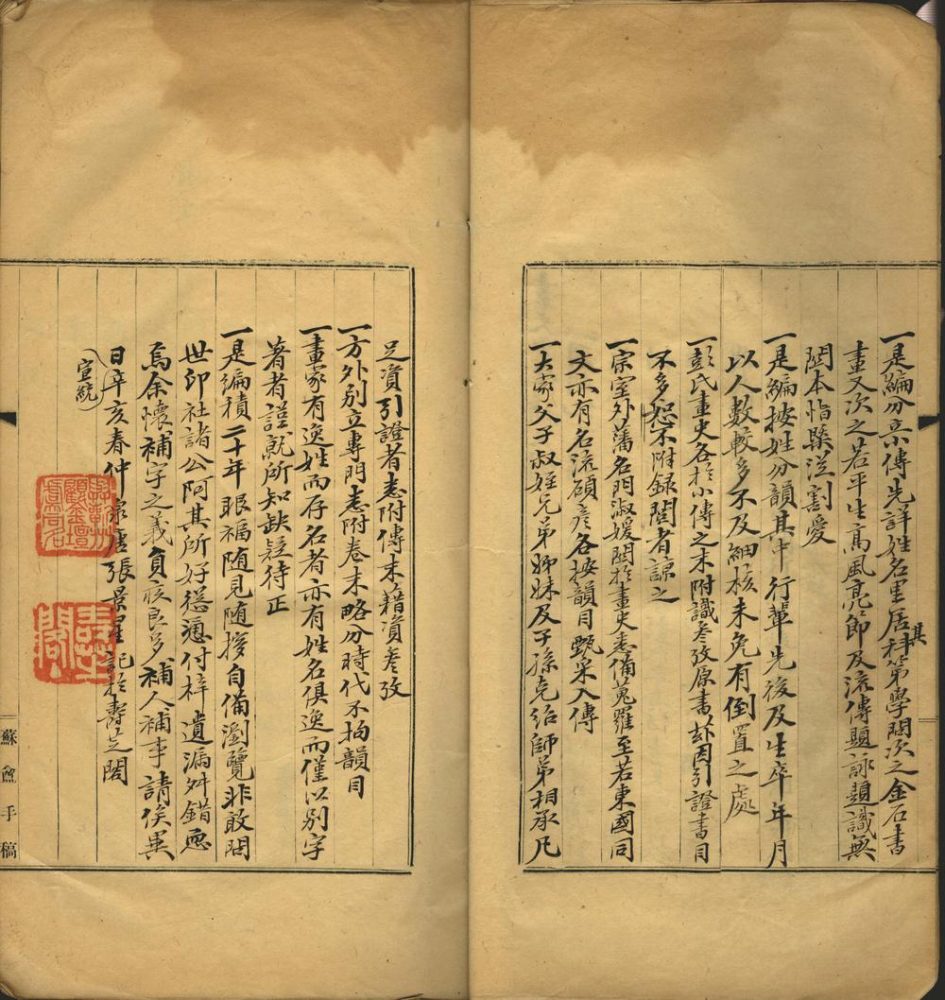 一是編分宗小傳先詳姓名里居科第學問次之金石書
其
畫又次之若平生高風亮節及流傳題詠題識無
關本恉槩從割愛
一是編按姓分韻其中行輩先後及生卒年月
以人數較多不及細核未免有倒置之處
一彭氏畫史各於小傳之末附識參攷原書玆因引證書目
不多恕不附錄閱者諒之
一宗室外藩名門淑媛關於畫史悉備蒐羅至若東國同
文亦有名流碩彥各按韻目甄采入傳
一大家父子叔姪兄弟姊妹及子孫克紹師弟相承凡
足資引證者悉附傳末藉資參攷
一方外別立專門悉附卷末略分時代不拘韻目
一畫家有逸姓而存名者亦有姓名俱逸而僅以別字
著者謹就所知缺疑待正
一是編積二十年眼福隨見隨揆自備瀏覽非敢問
世印社諸公阿其所好慫恿付梓遺漏舛錯恧
焉余懷補字之義負疚良多補人補事請俟異
日辛亥春仲泉唐張景星記於壽芝閣
宣統
蘇盦手稿